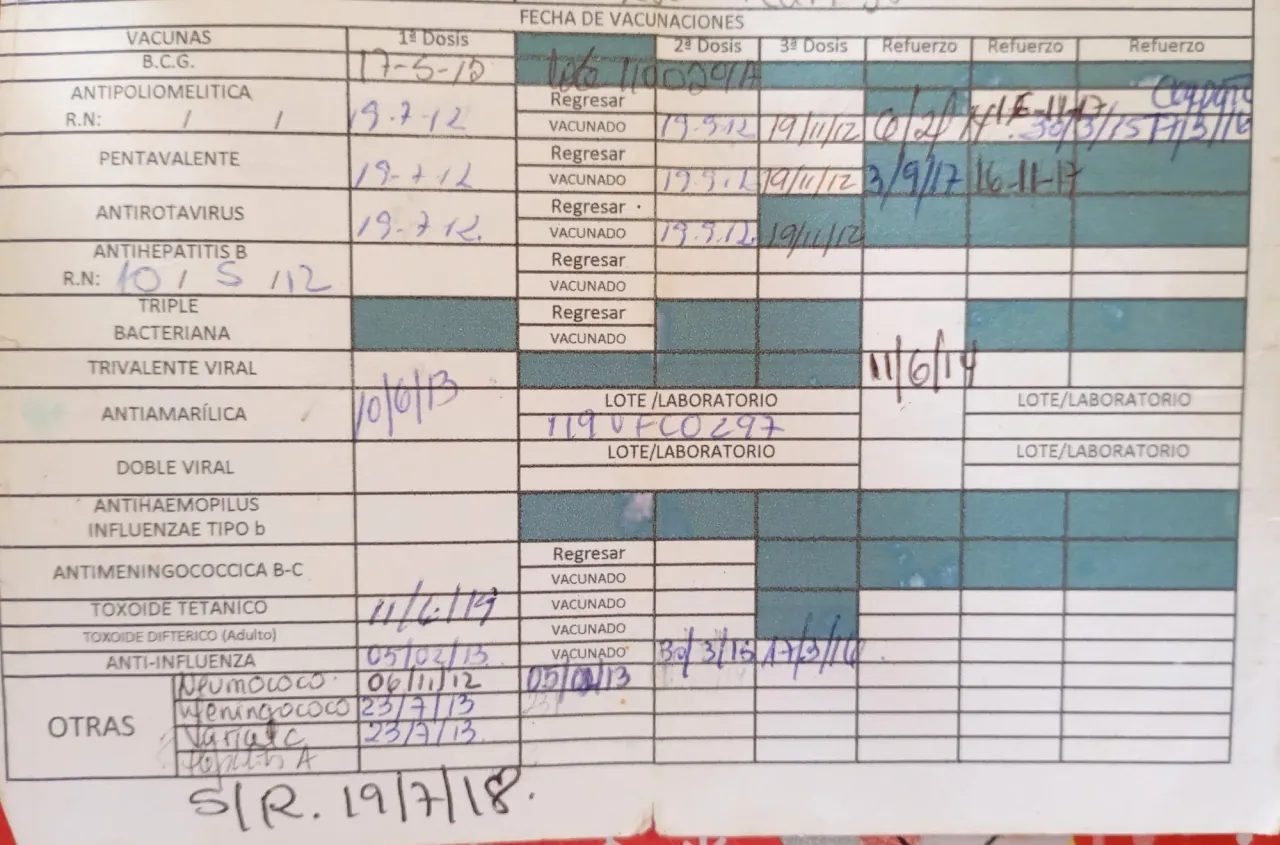 FECHA DE VACUNACIONES
VACUNAS 1ª Dosis 2ª Dosis 3ª Dosis Refuerzo Refuerzo Refuerzo
B.C.G. 17-5-12 lote 110029/A
ANTIPOLIOMELITICA Regresar 16-11-17
R.N: / / 19.7-12 VACUNADO 19.9.12 19/11/12 6/2/14 30/3/15 17/3/16
PENTAVALENTE Regresar
19-7.12 VACUNADO 19.9.12 19/11/12 3/9/17 16-11-17
ANTIROTAVIRUS Regresar
19.7 12. VACUNADO 19.9.12. 19/11/12
ANTIHEPATITIS B Regresar
R.N: 10 / 5 /12 VACUNADO
TRIPLE Regresar
BACTERIANA VACUNADO
TRIVALENTE VIRAL 11/6/14
ANTIAMARÍLICA 10/6/13 LOTE /LABORATORIO LOTE/LABORATORIO
119VFC0297
DOBLE VIRAL LOTE/LABORATORIO LOTE/LABORATORIO
ANTIHAEMOPILUS
INFLUENZAE TIPO b
ANTIMENINGOCOCCICA B-C Regresar
VACUNADO
TOXOIDE TETANICO 11/6/14 VACUNADO
TOXOIDE DIFTERICO (Adulto) VACUNADO
ANTI-INFLUENZA 05/02/13 VACUNADO 30/3/15 17/3/16
OTRAS
Neumococo 06/11/12 05/02/13
Meningococo 23/7/13
Varicela 23/7/13.
Hepatitis A
S/R. 19/7/18.